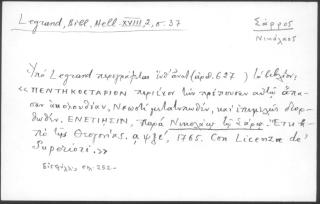 Legrand, Bibl. Hell. XVIII, 2, σ. 37
Σάρρος
Νικόλαος
Ὑπὸ Legrand περιγράφεται ὑπ' ἀριθ. (ἀριθ. 627) τὸ βιβλίον:
«ΠΕΝΤΗΚΟΣΤΑΡΙΟΝ περιέχον τὴν πρέπουσαν αὐτῷ ἅπα-
σαν ἀκολουθίαν, Νεωστὶ μετατυπωθὲν, καὶ ἐπιμελῶς διορ-
θωθέν. ΕΝΕΤΙΗΣΙΝ, παρὰ Νικολάῳ τῷ Σάρῳ. Ἔτει ἀ-
πὸ τῆς Θεογονίας, αψξε', 1765. Con Licenza de'
Superiori.»
σελ. 252-